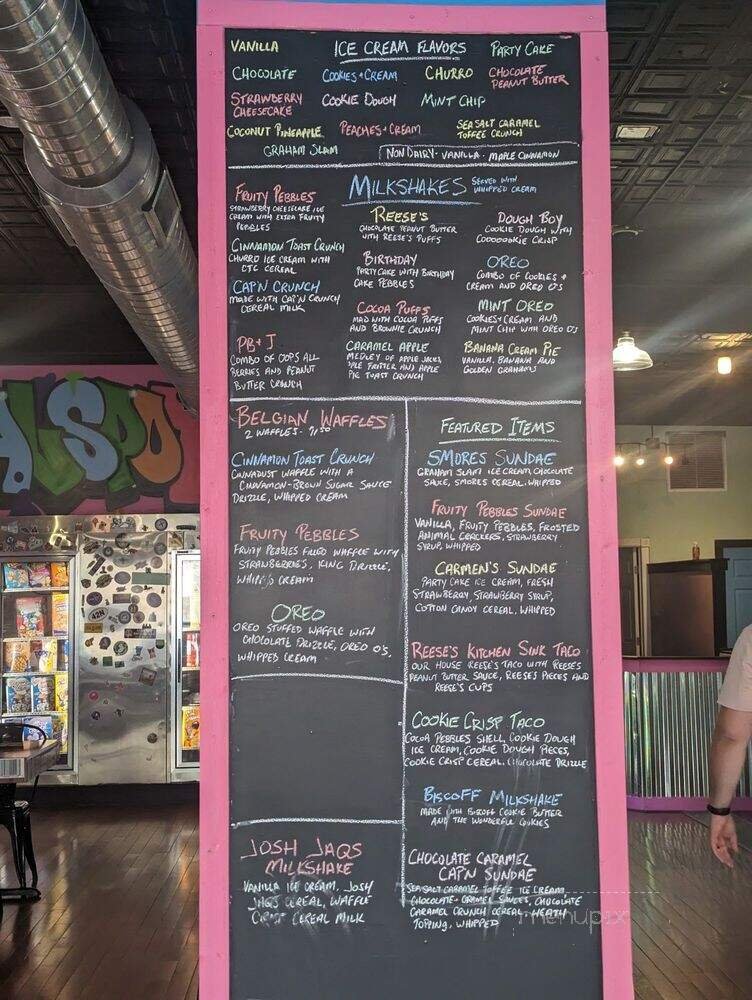 VANILLA ICE CREAM FLAVORS PARTY CAKE
CHOCOLATE COOKIES + CREAM CHURRO CHOCOLATE PEANUT BUTTER
STRAWBERRY CHEESECAKE COOKIE DOUGH MINT CHIP
COCONUT PINEAPPLE PEACHES + CREAM SEA SALT CARAMEL TOFFEE CRUNCH
GRAHAM SLAM NON DAIRY · VANILLA · MAPLE CINNAMON
MILKSHAKES SERVED WITH WHIPPED CREAM
FRUITY PEBBLES
STRAWBERRY CHEESECAKE ICE
CREAM WITH EXTRA FRUITY
PEBBLES
CINNAMON TOAST CRUNCH
CHURRO ICE CREAM WITH
CTC CEREAL
CAP'N CRUNCH
MADE WITH CAP'N CRUNCH
CEREAL MILK
PB + J
COMBO OF OOPS ALL
BERRIES AND PEANUT
BUTTER CRUNCH
REESE'S
CHOCOLATE PEANUT BUTTER
WITH REESE'S PUFFS
BIRTHDAY
PARTY CAKE WITH BIRTHDAY
CAKE PEBBLES
COCOA PUFFS
MAD WITH COCOA PUFFS
AND BROWNIE CRUNCH
CARAMEL APPLE
MEDLEY OF APPLE JACKS,
FRITTER AND APPLE
PIE TOAST CRUNCH
DOUGH BOY
COOKIE DOUGH WITH
COOOOOKIE CRISP
OREO
COMBO OF COOKIES +
CREAM AND OREO O'S
MINT OREO
COOKIES + CREAM AND
MINT CHIP WITH OREO O'S
BANANA CREAM PIE
VANILLA, BANANA AND
GOLDEN GRAHAMS
BELGIAN WAFFLES
2 WAFFLES -
CINNAMON TOAST CRUNCH
CINNADUST WAFFLE WITH A
CINNAMON-BROWN SUGAR SAUCE
DRIZZLE, WHIPPED CREAM
FRUITY PEBBLES
FRUITY PEBBLES FILLED WAFFLE WITH
STRAWBERRIES, ICING DRIZZLE,
WHIPPED CREAM
OREO
OREO STUFFED WAFFLE WITH
CHOCOLATE DRIZZLE, OREO O'S,
WHIPPED CREAM
JOSH JAQS
MILKSHAKE
VANILLA ICE CREAM, JOSH
JAQS CEREAL, WAFFLE
CRISP CEREAL MILK
FEATURED ITEMS
SMORES SUNDAE
GRAHAM SLAM ICE CREAM, CHOCOLATE
SAUCE, SMORES CEREAL, WHIPPED
FRUITY PEBBLES SUNDAE
VANILLA, FRUITY PEBBLES, FROSTED
ANIMAL CRACKERS, STRAWBERRY
SYRUP, WHIPPED
CARMEN'S SUNDAE
PARTY CAKE ICE CREAM, FRESH
STRAWBERRY, STRAWBERRY SYRUP,
COTTON CANDY CEREAL, WHIPPED
REESE'S KITCHEN SINK TACO
OUR HOUSE REESE'S TACO WITH REESE'S
PEANUT BUTTER SAUCE, REESE'S PIECES AND
REESE'S CUPS
COOKIE CRISP TACO
COCOA PEBBLES SHELL, COOKIE DOUGH
ICE CREAM, COOKIE DOUGH PIECES,
COOKIE CRISP CEREAL, CHOCOLATE DRIZZLE
BISCOFF MILKSHAKE
MADE WITH BISCOFF COOKIE BUTTER
AND THE WONDERFUL COOKIES
CHOCOLATE CARAMEL
CAP'N SUNDAE
SEA SALT CARAMEL TOFFEE ICE CREAM
CHOCOLATE + CARAMEL SAUCES, CHOCOLATE
CARAMEL CRUNCH CEREAL, HEATH
TOPPING, WHIPPED
menupix